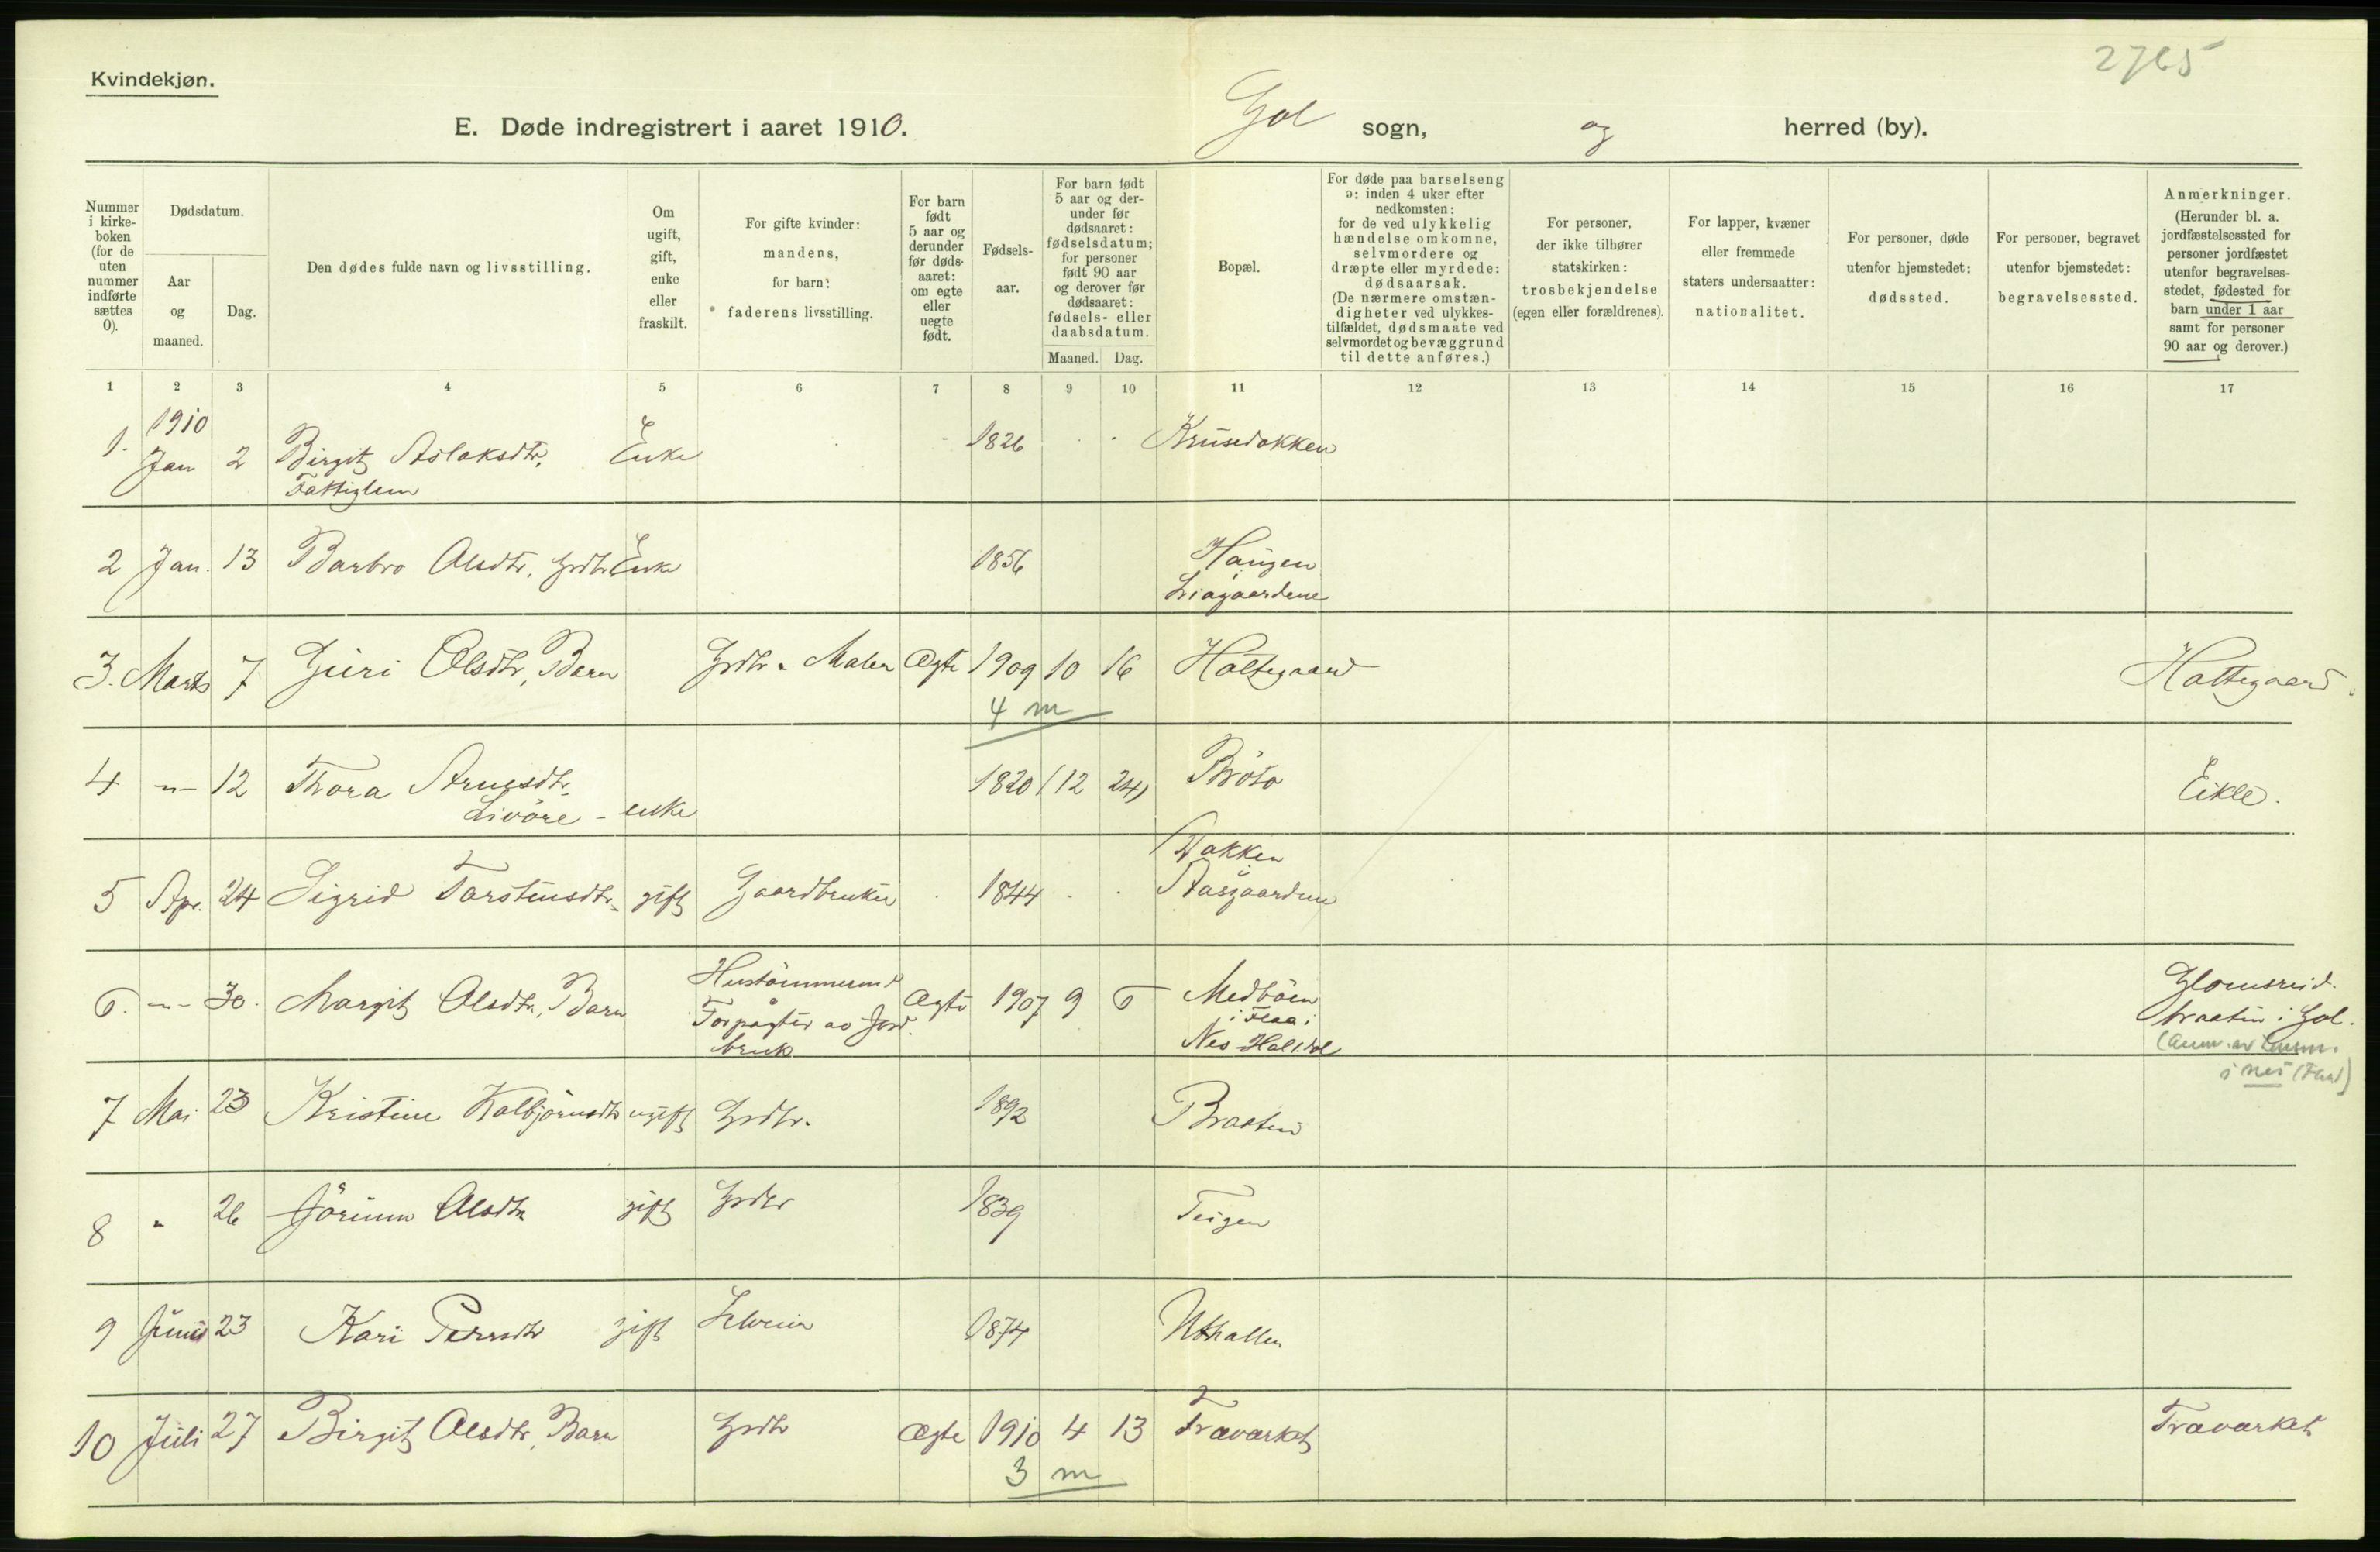 2765
Kvindekjøn.
E. Døde indregistrert i aaret 1910. Gol sogn, og herred (by).
Nummer i kirke-boken (for de uten nummer indførte sættes 0).
Dødsdatum.
Aar og maaned.
Dag.
Den dødes fulde navn og livsstilling.
Om ugift, gift, enke eller fraskilt.
For gifte kvinder: mandens, for barn: faderens livsstilling.
For barn født 5 aar og derunder før døds-aaret: om egte eller uegte født.
Fødsels-aar.
For barn født 5 aar og der-under før dødsaaret: fødselsdatum; for personer født 90 aar og derover før dødsaaret: fødsels- eller daabsdatum.
Maaned. Dag.
Bopæl.
For døde paa barselseng ɔ: inden 4 uker efter nedkomsten: for de ved ulykkelig hændelse omkomne, selvmordere og dræpte eller myrdede: dødsaarsak. (De nærmere omstæn-digheter ved ulykkes-tilfældet, dødsmaate ved selvmordet og bevæggrund til dette anføres.)
For personer, der ikke tilhører statskirken: trosbekjendelse (egen eller forældrenes).
For lapper, kvæner eller fremmede staters undersaatter: nationalitet.
For personer, døde utenfor hjemstedet: dødssted.
For personer, begravet utenfor bjemstedet: begravelsessted.
Anmerkninger. (Herunder bl. a. jordfæstelsessted for personer jordfæstet utenfor begravelses-stedet, fødested for barn under 1 aar samt for personer 90 aar og derover.)
1 2 3 4 5 6 7 8 9 10 11 12 13 14 15 16 17
1910
1. Jan 2 Birgit Aslaksdtr, Enke 1826 Krusedokken
Fattiglem
2 Jan. 13 Barbro Olsdtr, Grdbr Enke 1856 Haugen
Liagaardene
3. Marts 7 Guri Olsdtr, Barn Grdbr & Maler Ægte 1909 10 16 Holtegaard Holtegaard.
4 m
4 -"- 12 Thora Arnesdtr. 1820 (12 24) Bröto Eikle.
Livöre - enke
5 Apr. 24 Sigrid Torsteinsdtr, gift Gaardbruker 1844 Dokken
Aasgaardene
6. -"- 30. Margit Olsdtr, Barn Hustömmermd Ægte 1907 9 6 Medböen
Forpagter av Jord-bruk
i Flaa i
Nes Halldal
Glomsreid-
braaten i Gol.
(Anm. av Lensm.
i Nes (Flaa)
7 Mai 23 Kristine Kolbjörnsdtr ugift Grdbr. 1892 Braaten
8 " 26 Jörunn Olsdtr gift Grdbr 1839 Teigen
9 Juni 23 Kari Persdtr gift 1874
10 Juli 27 Birgit Olsdtr, Barn Grdbr Ægte 1910 4 13 Travarket Travarket
3 m